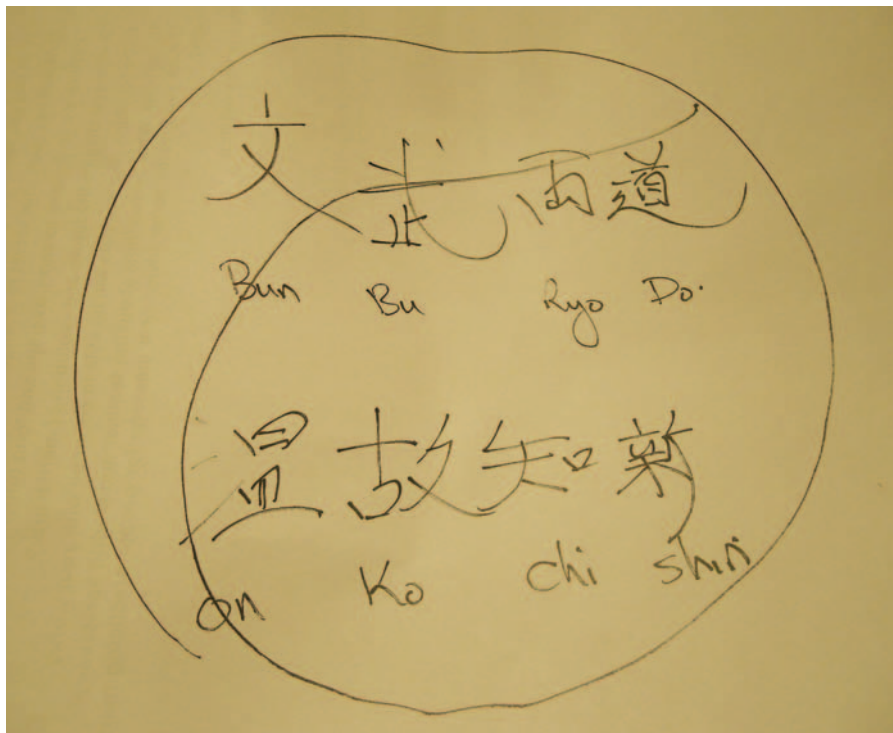 文武両道
Bun Bu Ryo Do.
温故知新
On Ko Chi Shin